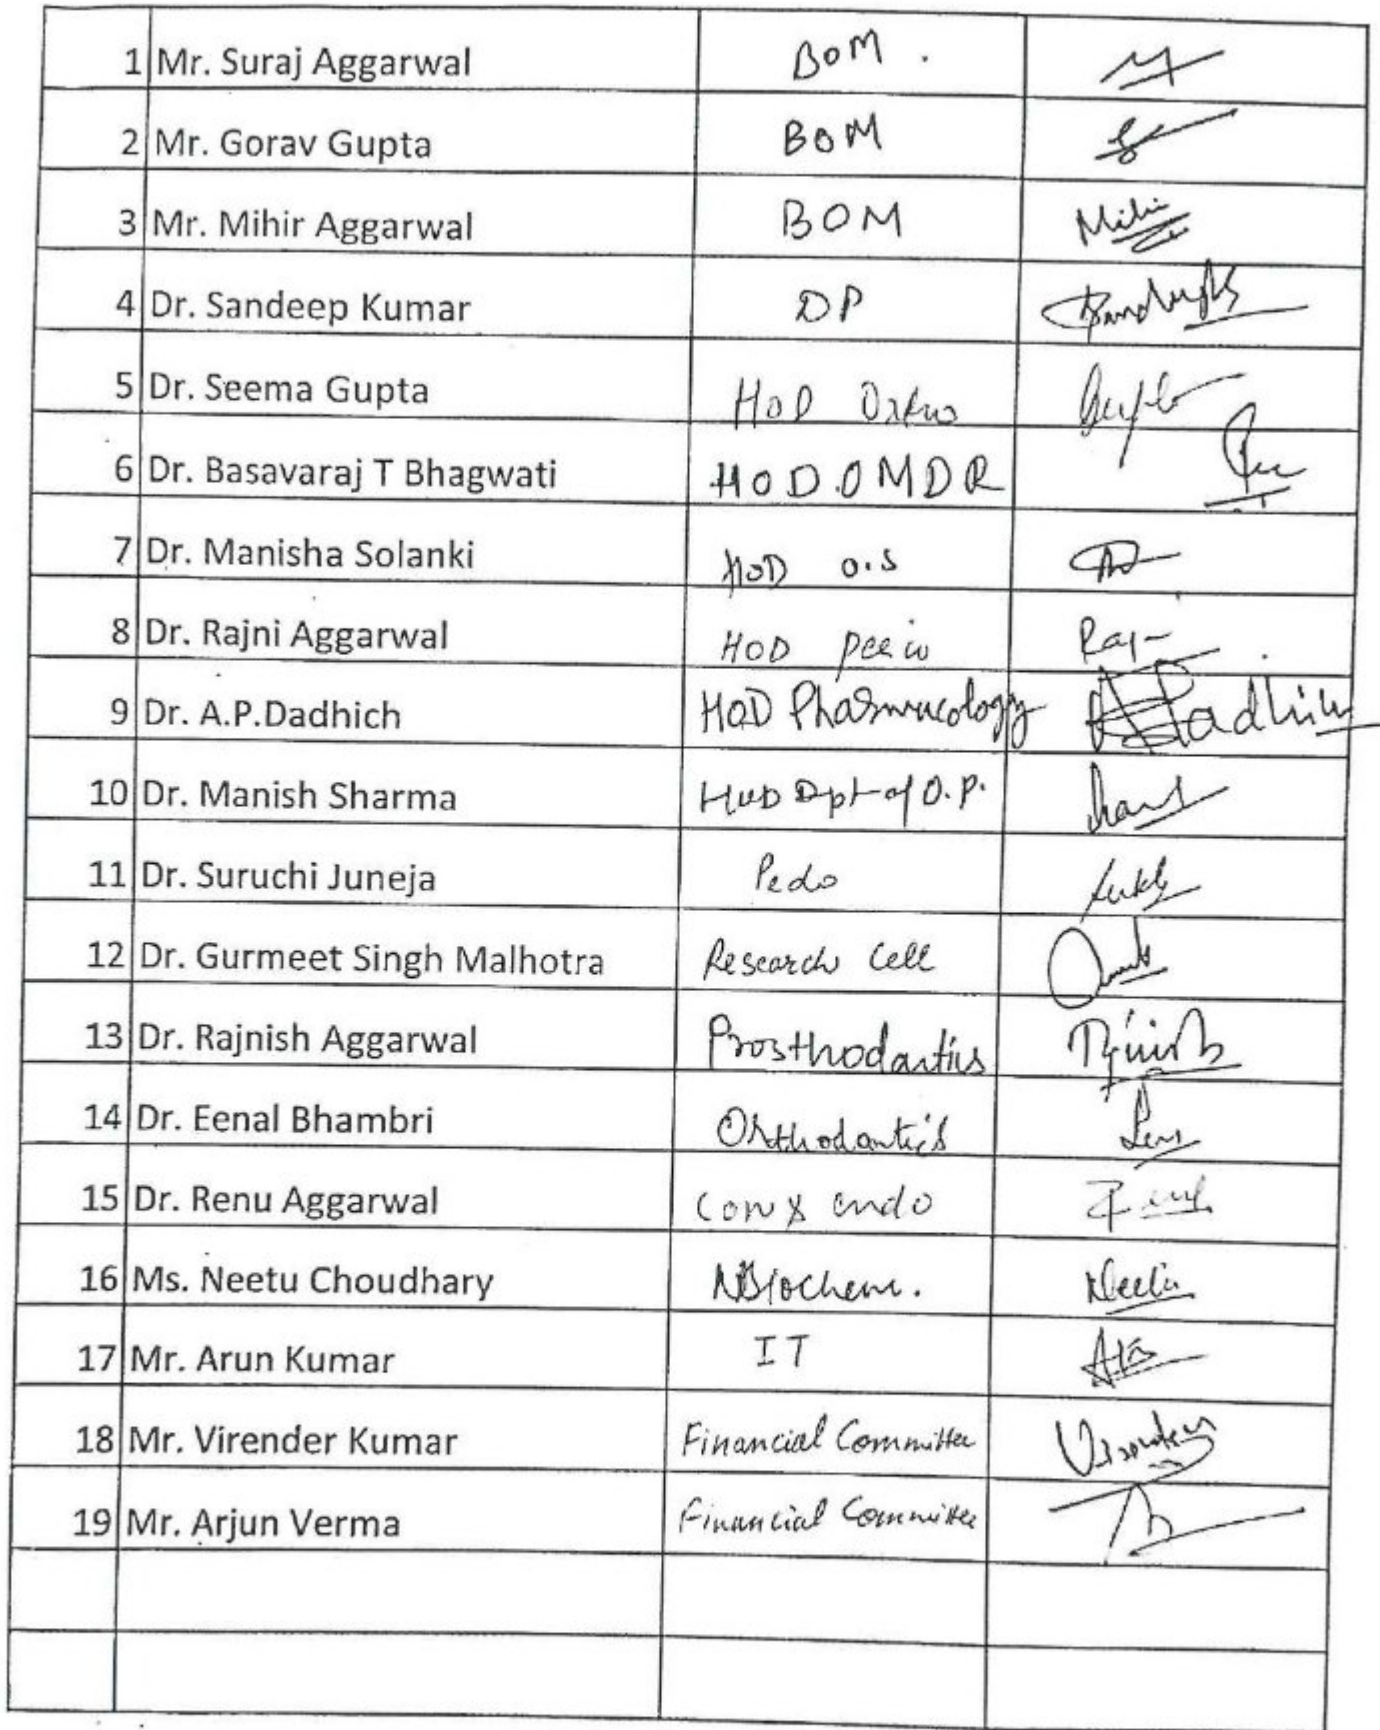 1 Mr. Suraj Aggarwal BOM.
2 Mr. Gorav Gupta BOM
3 Mr. Mihir Aggarwal BOM
4 Dr. Sandeep Kumar DP
5 Dr. Seema Gupta HOD Ortho Gupta
6 Dr. Basavaraj T Bhagwati HOD.OMDR
7 Dr. Manisha Solanki HOD O.S
8 Dr. Rajni Aggarwal HOD perio Raj
9 Dr. A.P.Dadhich HOD Pharmacology
10 Dr. Manish Sharma HOD Dpt of O.P.
11 Dr. Suruchi Juneja Pedo
12 Dr. Gurmeet Singh Malhotra Research Cell
13 Dr. Rajnish Aggarwal Prosthodontics
14 Dr. Eenal Bhambri Orthodontics
15 Dr. Renu Aggarwal Cons endo
16 Ms. Neetu Choudhary Biochem. Neetu
17 Mr. Arun Kumar IT
18 Mr. Virender Kumar Financial Committee
19 Mr. Arjun Verma Financial Committee